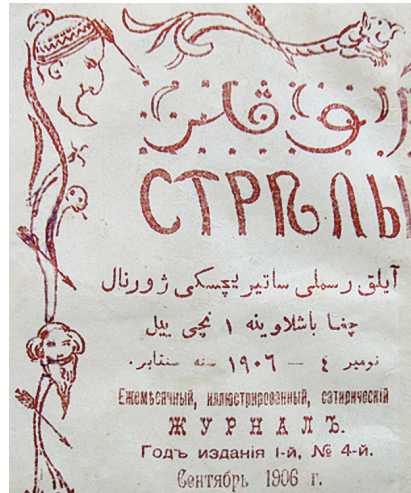 СТРѢЛЫ
آیلق رسملی ساتیریچسکی ژورنال
چغا باشلاوینه ١ نچی ییل
نومیر ٤ — ١٩٠٦ سنه سنتابر.
Ежемѣсячный, иллюстрированный, сатирическій
ЖУРНАЛЪ.
Годъ изданія I-й, № 4-й.
Сентябрь 1906 г.